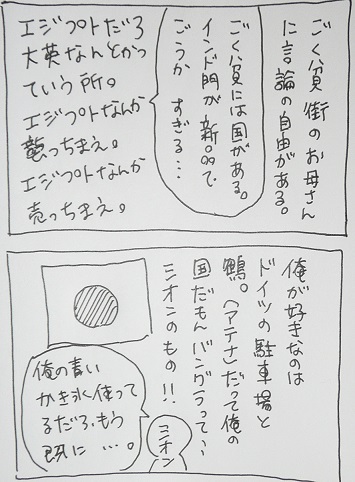 ごく貧街のお母さん
に言論の自由がある。
ごく貧には国がある。
インド門が新品で
ごうか
すぎる…
エジプトだろ
大英なんとかっ
ていう所。
エジプトなんか
襲っちまえ。
エジプトなんか
売っちまえ。
俺が好きなのは
ドイツの駐車場と
。〈アテナ〉だって俺の
国だもんバングラって、、
ミオンのもの!!
俺の青い
かき氷使って
るだろ、もう
既に…。
ミオン